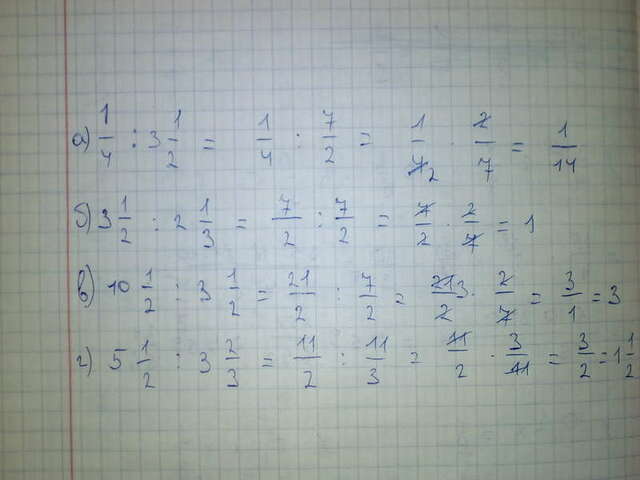 а) 1/4 : 3 1/2 = 1/4 : 7/2 = 1/4 2 · 2/7 = 1/14
б) 3 1/2 : 2 1/3 = 7/2 : 7/2 = 7/2 · 2/7 = 1
в) 10 1/2 : 3 1/2 = 21/2 : 7/2 = 21 3/2 · 2/7 = 3/1 = 3
г) 5 1/2 : 3 2/3 = 11/2 : 11/3 = 11/2 · 3/11 = 3/2 = 1 1/2